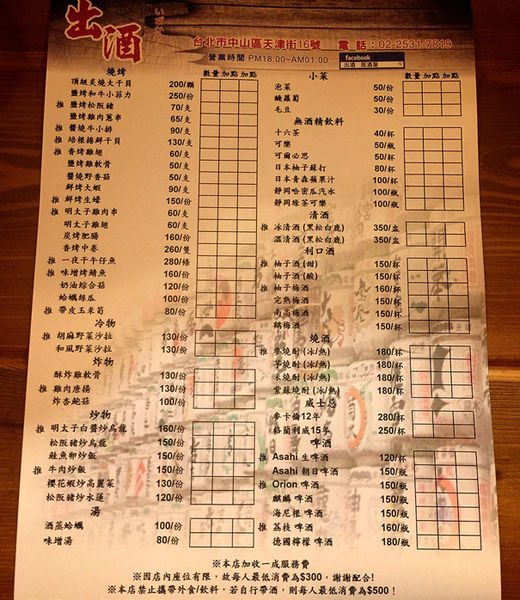 出酒
いざかや
台北市中山區天津街16號 電話:02-2531-7519
營業時間 PM18:00~AM01:00
facebook
出酒 居酒屋
數量 加點 加點
燒烤
頂級炙燒大干貝 200/顆
鹽烤和牛小菲力 250/份
推 鹽烤松阪豬 70/支
鹽烤雞肉蔥串 65/支
推 醬燒牛小排 90/支
推 培根捲鮮干貝 130/支
推 香烤雞翅 60/支
鹽烤雞軟骨 60/支
醬燒野香菇 50/支
鮮烤大蝦 90/支
推 鮮烤生蠔 150/份
推 明太子雞肉串 60/支
明太子雞翅 60/支
炭烤肥腸 160/份
香烤中卷 260/隻
推 一夜干午仔魚 280/條
推 味增烤鯖魚 160/份
奶油綜合菇 120/份
蛤蠣絲瓜 100/份
推 帶皮玉米筍 80/份
冷物
推 胡麻野菜沙拉 130/份
和風野菜沙拉 130/份
炸物
酥炸雞軟骨 130/份
推 雞肉唐揚 130/份
炸杏鮑菇 100/份
炒物
推 明太子白醬炒烏龍 160/份
松阪豬炒烏龍 150/份
鮭魚卵炒飯 150/份
推 牛肉炒飯 150/份
櫻花蝦炒高麗菜 130/份
松阪豬炒水蓮 120/份
湯
酒蒸蛤蠣 100/份
味增湯 80/份
數量 加點 加點
小菜
泡菜 50/份
醃蘿蔔 50/份
毛豆 30/份
無酒精飲料
十六茶 40/杯
可樂 50/瓶
可爾必思 50/杯
日本柚子蘇打 80/杯
日本青森蘋果汁 100/杯
靜岡哈密瓜汽水 100/瓶
靜岡綠茶可樂 100/瓶
清酒
推 冰清酒(黑松白鹿) 350/盅
溫清酒(黑松白鹿) 350/盅
利口酒
推 柚子酒(甜) 150/杯
柚子酒(酸) 150/杯
推 柚子梅酒 160/杯
完熟梅酒 150/杯
南高梅酒 150/杯
鶴梅酒 150/杯
燒酒
推 麥燒酎(冰/熱) 180/杯
芋燒酎(冰/熱) 180/杯
米燒酎(冰/熱) 180/杯
紫蘇燒酎(冰/熱) 180/杯
威士忌
推 麥卡倫12年 280/杯
格蘭利威15年 250/杯
啤酒
推 Asahi 生啤酒 120/杯
Asahi 朝日啤酒 150/瓶
推 Orion 啤酒 150/瓶
麒麟 啤酒 150/瓶
海尼根 啤酒 150/瓶
推 荔枝 啤酒 160/瓶
德國檸檬 啤酒 180/瓶
※本店加收一成服務費
※因店內座位有限,故每人最低消費為$300,謝謝配合!
※本店禁止攜帶外食/飲料,若自行帶酒,則每人最低消費為$500!